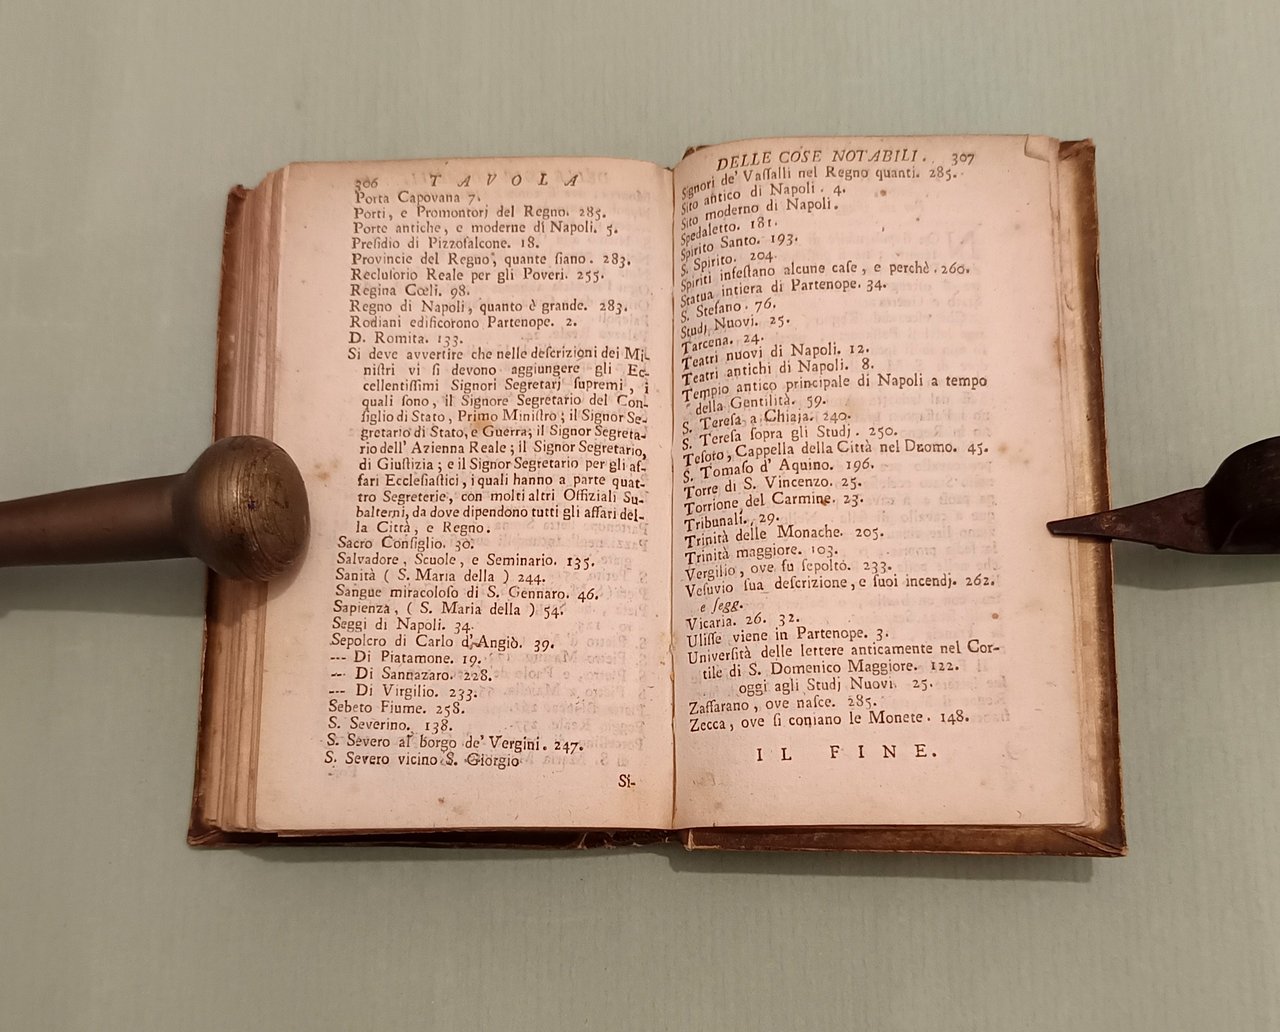 306 TAVOLA
Porta Capovana 7.
Porti, e Promontorj del Regno. 285.
Porte antiche, e moderne di Napoli. 5.
Preſidio di Pizzofalcone. 18.
Provincie del Regno, quante ſiano. 283.
Recluſorio Reale per gli Poveri. 255.
Regina Cœli. 98.
Regno di Napoli, quanto è grande. 283.
Rodiani edificorono Partenope. 2.
D. Romita. 133.
Si deve avvertire che nelle deſcrizioni dei Mi-
niſtri vi ſi devono aggiungere gli Ec-
cellentiſſimi Signori Segretarj ſupremi, i
quali ſono, il Signore Segretario del Con-
ſiglio di Stato, Primo Miniſtro; il Signor Se-
gretario di Stato, e Guerra; il Signor Segreta-
rio dell' Azienna Reale; il Signor Segretario,
di Giuſtizia; e il Signor Segretario per gli af-
fari Eccleſiaſtici, i quali hanno a parte quat-
tro Segreterie, con molti altri Offiziali Su-
balterni, da dove dipendono tutti gli affari del-
la Città, e Regno.
Sacro Conſiglio. 30.
Salvadore, Scuole, e Seminario. 135.
Sanità ( S. Maria della ) 244.
Sangue miracoloſo di S. Gennaro. 46.
Sapienza, ( S. Maria della ) 54.
Seggi di Napoli. 34.
Sepolcro di Carlo d'Angiò. 39.
--- Di Piatamone. 19.
--- Di Sannazaro. 228.
--- Di Virgilio. 233.
Sebeto Fiume. 258.
S. Severino. 138.
S. Severo al borgo de' Vergini. 247.
S. Severo vicino S. Giorgio
Si-
DELLE COSE NOTABILI. 307
Signori de' Vaſſalli nel Regno quanti. 285.
Sito antico di Napoli. 4.
Sito moderno di Napoli.
Spedaletto. 181.
Spirito Santo. 193.
S. Spirito. 204.
Spiriti infeſtano alcune caſe, e perchè. 260.
Statua intiera di Partenope. 34.
S. Stefano. 76.
Studj Nuovi. 25.
Tarcena. 24.
Teatri nuovi di Napoli. 12.
Teatri antichi di Napoli. 8.
Tempio antico principale di Napoli a tempo
della Gentilità. 59.
S. Tereſa a Chiaja. 240.
S. Tereſa ſopra gli Studj. 250.
Teſoto, Cappella della Città nel Duomo. 45.
S. Tomaſo d' Aquino. 196.
Torre di S. Vincenzo. 25.
Torrione del Carmine. 23.
Tribunali. 29.
Trinità delle Monache. 205.
Trinità maggiore. 103.
Vergilio, ove fu ſepolto. 233.
Veſuvio ſua deſcrizione, e ſuoi incendj. 262.
e ſegg.
Vicaria. 26. 32.
Uliſſe viene in Partenope. 3.
Univerſità delle lettere anticamente nel Cor-
tile di S. Domenico Maggiore. 122.
oggi agli Studj Nuovi. 25.
Zaffarano, ove naſce. 285.
Zecca, ove ſi coniano le Monete. 148.
IL FINE.